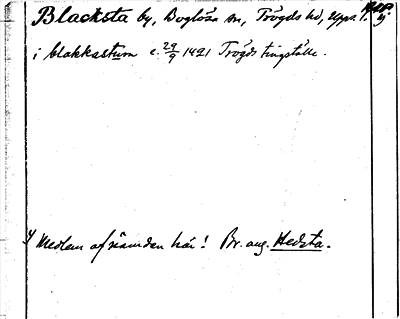 Blacksta by, Boglösa sn, Trögds hd, Upps. l.
i blakkastum c. 29/9 1421 Trögds tingställe.
Y Medlem af nämnden här! Br. ang. Hedsta.